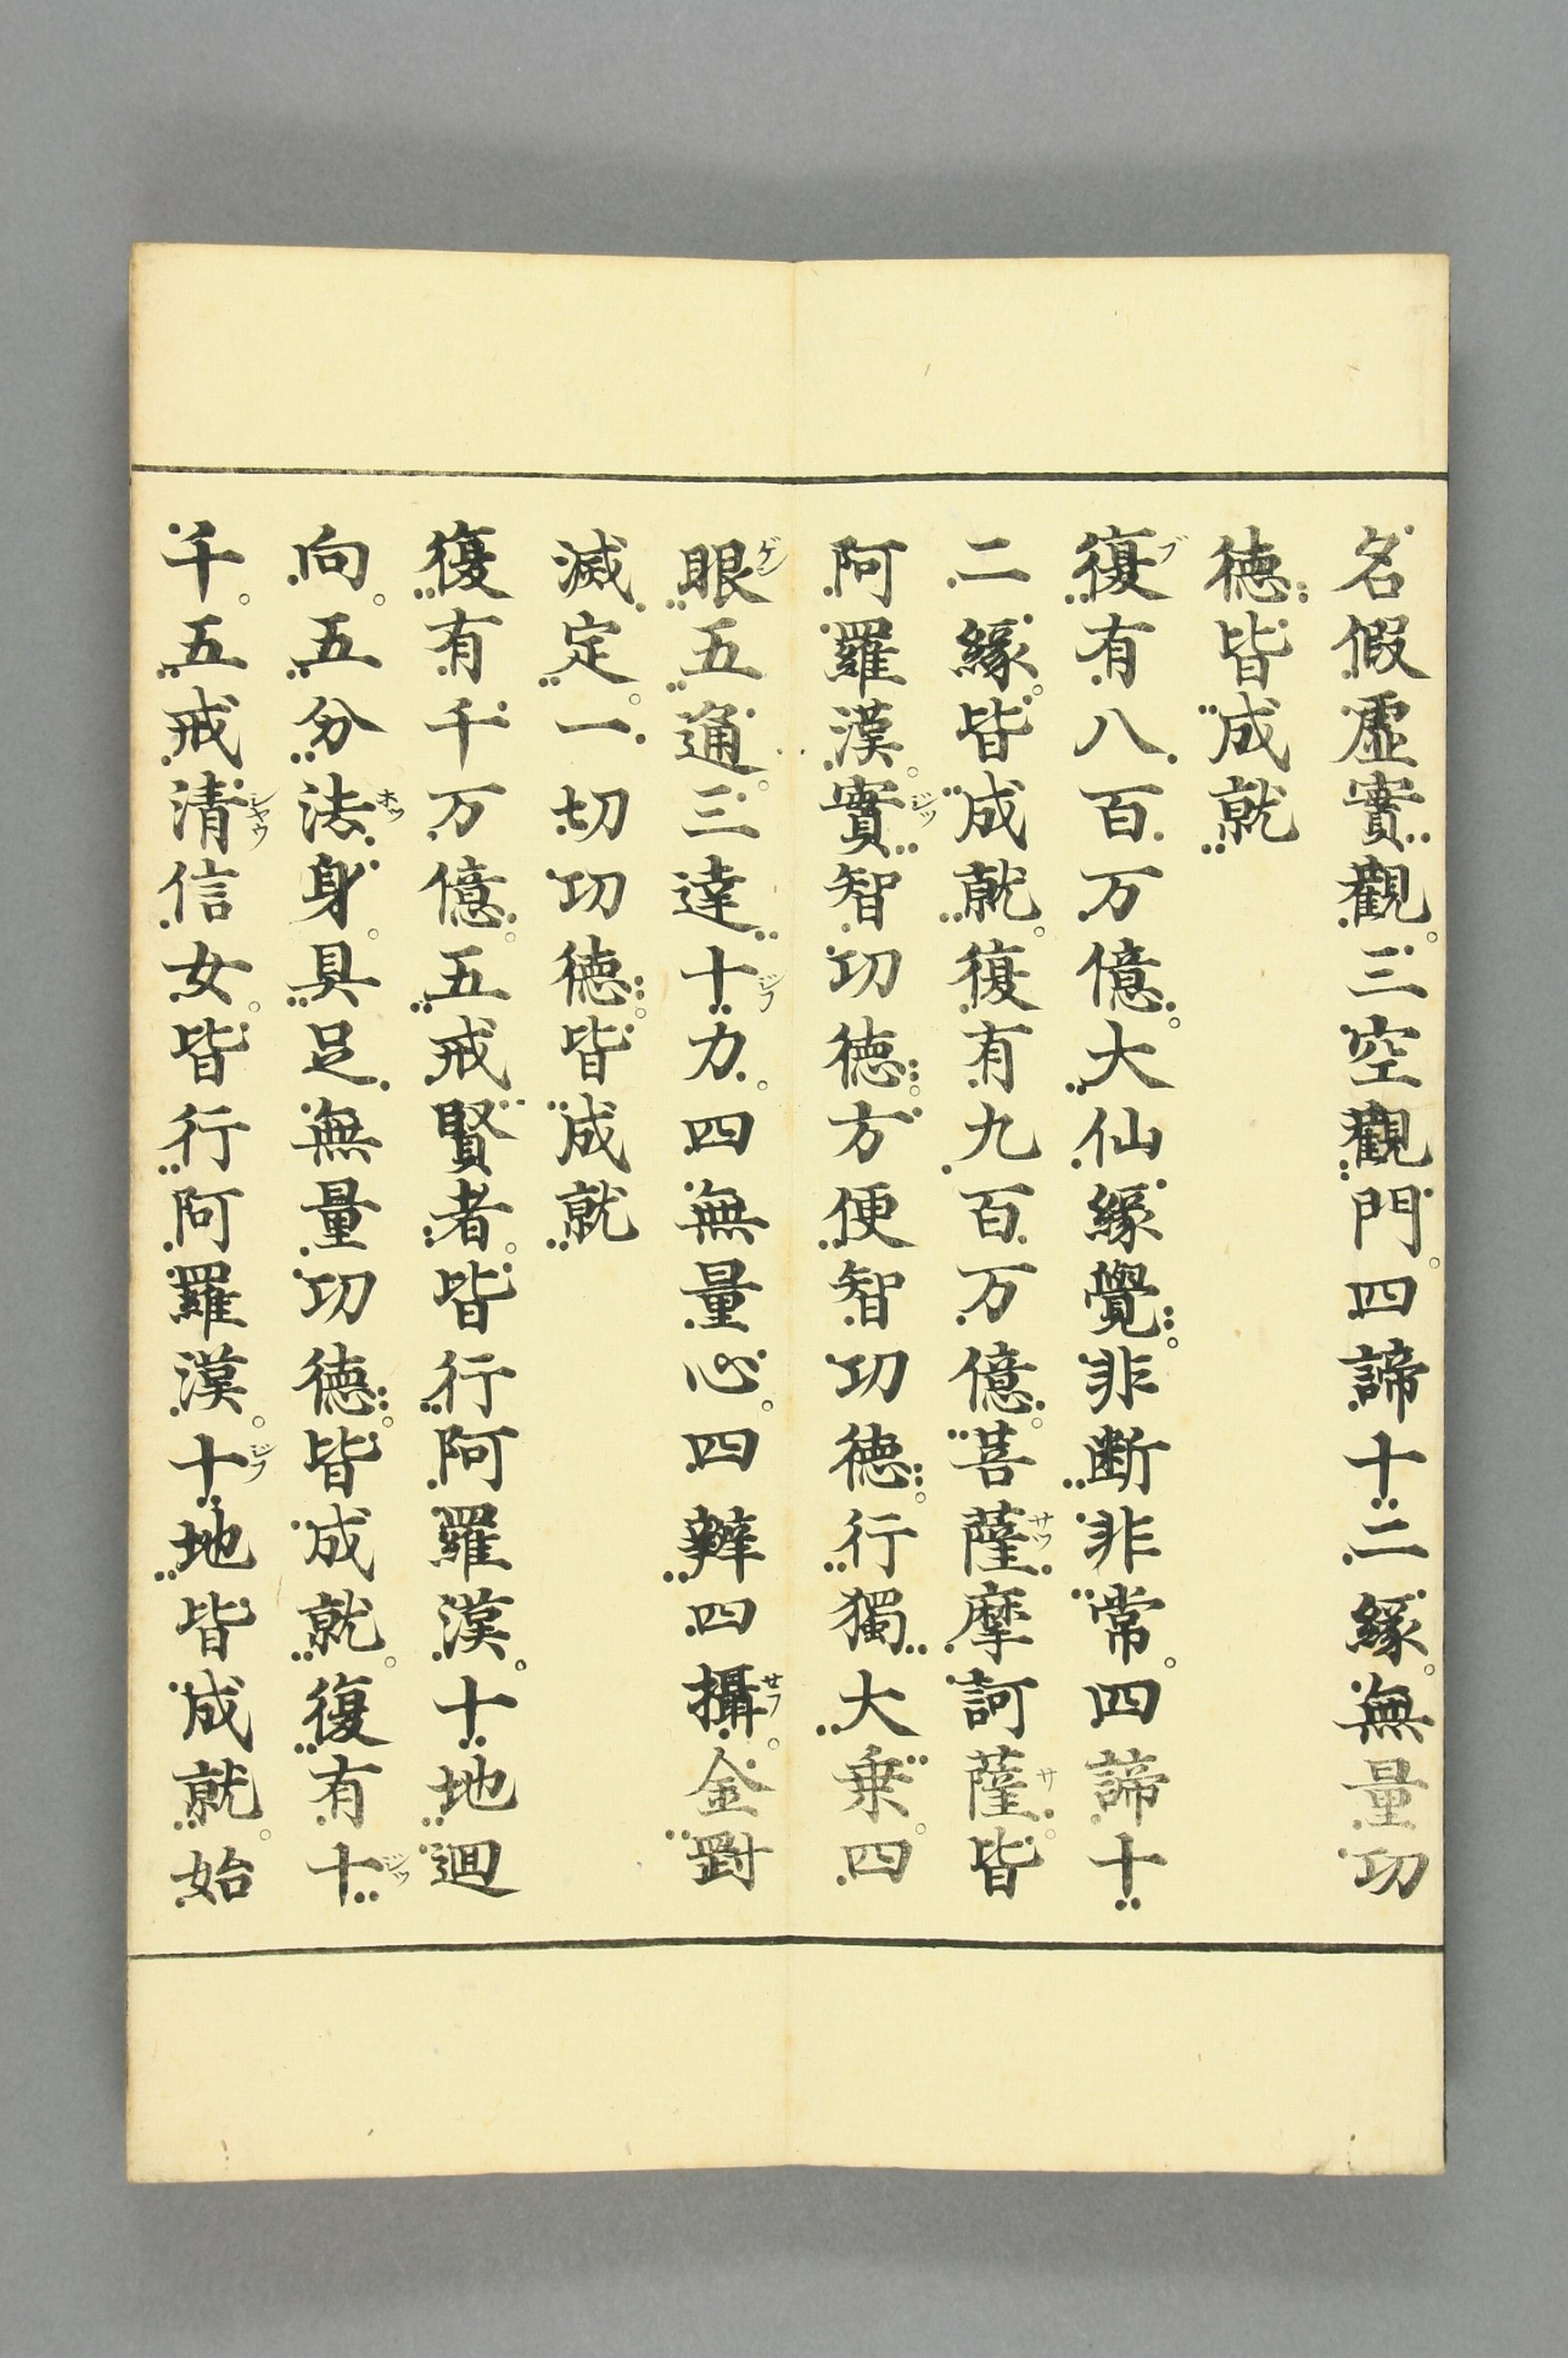 名假虛實觀。三空觀門。四諦十二緣。無量功
徳皆成就
復有八百万億。大仙緣覺。非断非常。四諦十
二緣。皆成就。復有九百万億。菩薩摩訶薩。皆
阿羅漢。實智功徳。方便智功徳。行獨大乗。四
眼五通。三達十力。四無量心。四辯四攝。金剛
滅定。一切功徳。皆成就
復有千万億。五戒賢者。皆行阿羅漢。十地迴
向。五分法身。具足無量功徳。皆成就。復有十
千。五戒清信女。皆行阿羅漢。十地皆成就。始